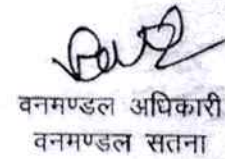 वनमण्डल अधिकारी
वनमण्डल सतना